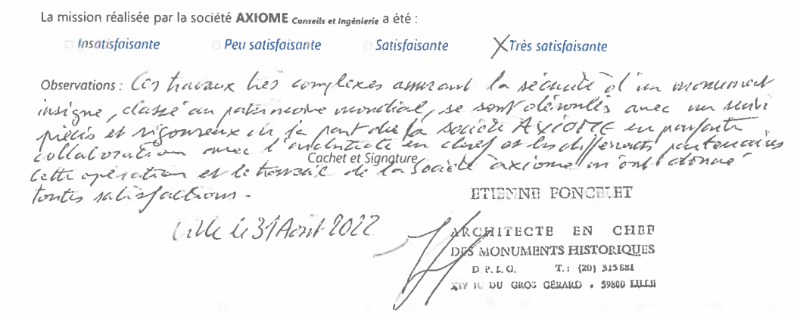 La mission réalisée par la société AXIOME Conseils et Ingénierie a été :
Insatisfaisante Peu satisfaisante Satisfaisante Très satisfaisante
Observations : Ces travaux très complexes assurant la sécurité d'un monument
insigne, classé au patrimoine mondial, se sont déroulés avec un suivi
précis et rigoureux de la part de la société AXIOME en parfaite
collaboration avec l'architecte en chef et les différents partenaires
Cachet et Signature
Cette opération et le travail de la Société axiome m'ont donné
toutes satisfactions.
Lille le 31 Août 2022
ETIENNE PONCELET
ARCHITECTE EN CHEF
DES MONUMENTS HISTORIQUES
D.P.L.G. T.: (20) 315881
XIV R. DU GROS GÉRARD . 59800 LILLE